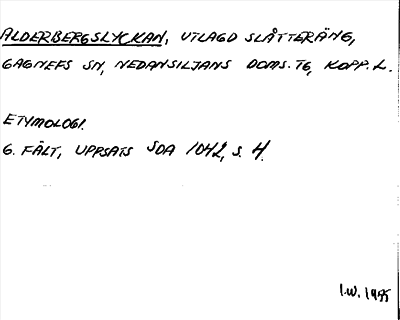 ALDERBERGSLYCKAN, UTLAGD SLÅTTERÄNG,
GAGNEFS SN, NEDANSILJANS DOMS. TG, KOPP. L.
ETYMOLOGI.
G. FÄLT, UPPSATS SOA 1042, S. 4.
I.W.